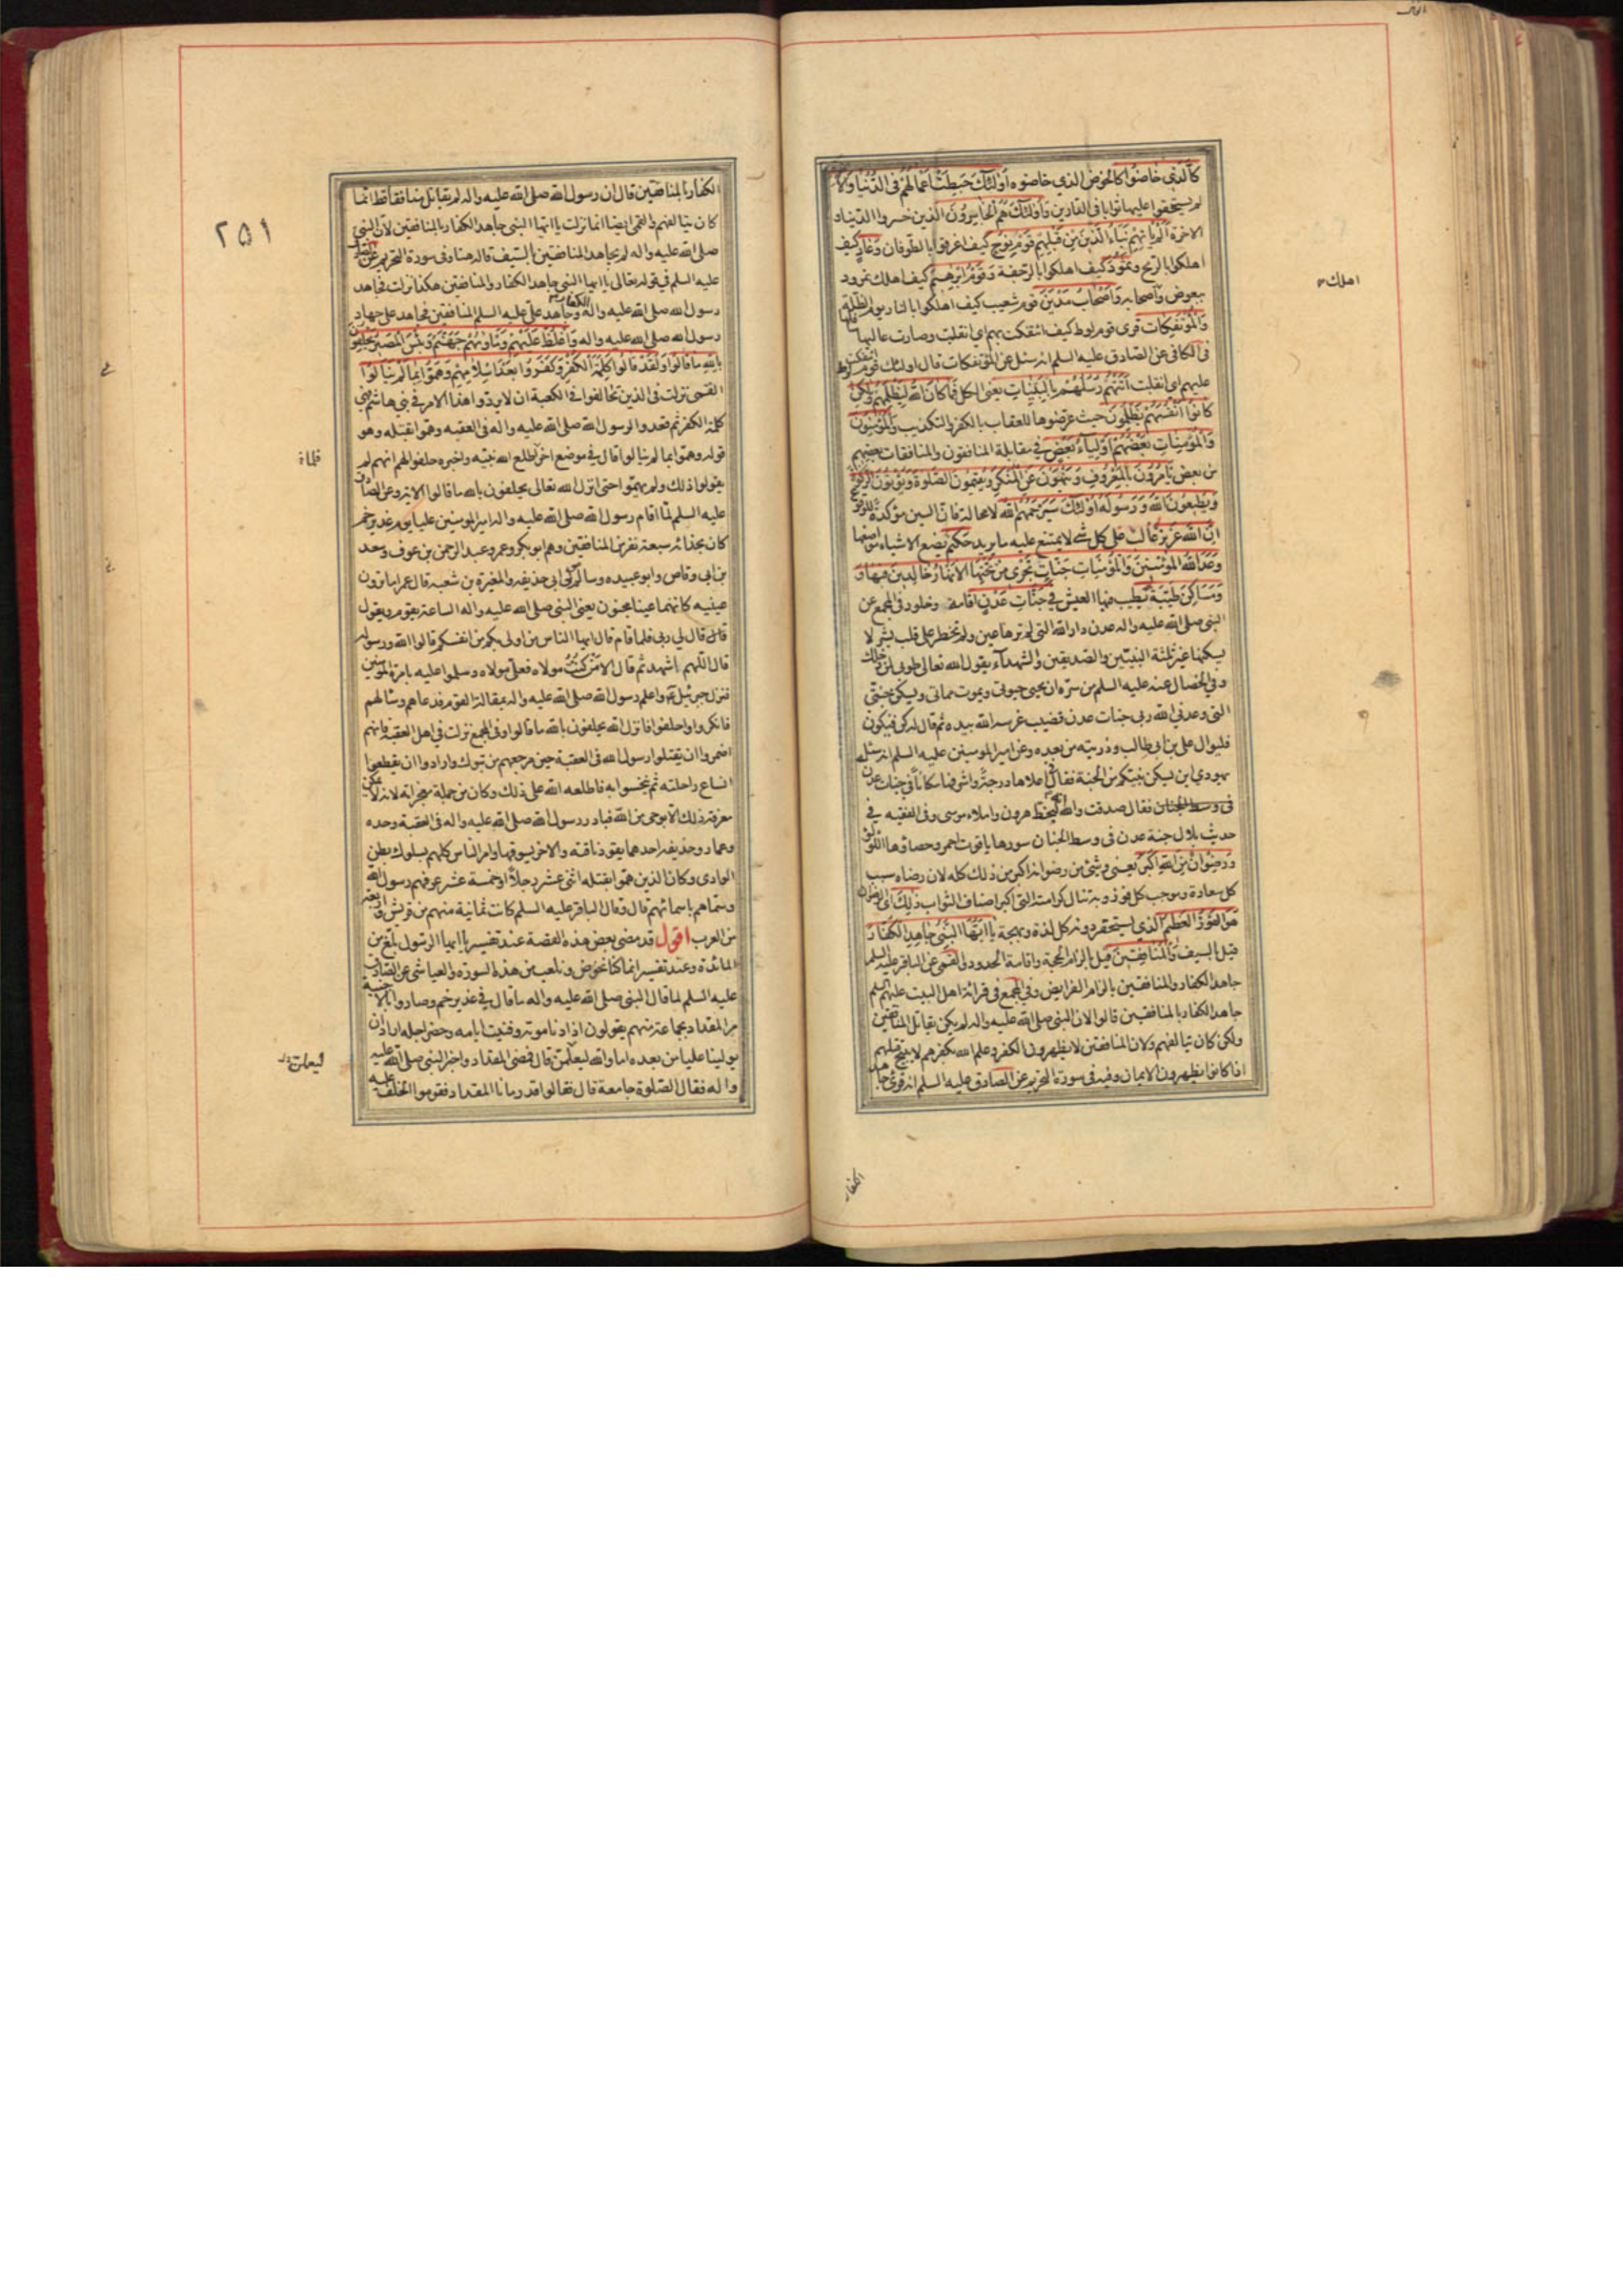 كَالَّذي خاضُوا كالخوض الذي خاضوه أُولئِكَ حَبِطَتْ أَعْمالُهُمْ فِي الدُّنْيا وَالآ
لم يستحقوا عليها ثوابا في الدارين وَأُولئِكَ هُمُ الْخاسِرُونَ الذين خسروا الدنيا و
الاخرة أَلَمْ يَأْتِهِمْ نَبَأُ الَّذينَ مِنْ قَبْلِهِمْ قَوْمِ نُوحٍ كيف اغرقوا بالطوفان وَعادٍ كيف
اهلكوا بالريح وَثَمُودَ كيف اهلكوا بالرجفة وَقَوْمِ إِبْرهيمَ كيف اهلك نمرود
ببعوض واصحابه وَأَصْحابِ مَدْيَنَ قوم شعيب كيف اهلكوا بالنار يوم الظلة
وَالْمُؤْتَفِكاتِ قرى قوم لوط كيف ائتفكت بهم اي انقلبت وصارت عاليها سافلها
في الكافي عن الصادق عليه السلم انه سئل عن المؤتفكات قال اولئك قوم لوط ائتفكت
عليهم اي انقلبت أَتَتْهُمْ رُسُلُهُمْ بِالْبَيِّناتِ يعني الكل فَما كانَ اللهُ لِيَظْلِمَهُمْ وَلكِنْ
كانُوا أَنْفُسَهُمْ يَظْلِمُونَ حيث عرضوها للعقاب بالكفر والتكذيب وَالْمُؤْمِنُونَ
وَالْمُؤْمِناتِ بَعْضُهُمْ أَوْلِياءُ بَعْضٍ في مقابلة المنافقون والمنافقات بعضهم
من بعض يَأْمُرُونَ بِالْمَعْرُوفِ وَيَنْهَوْنَ عَنِ الْمُنْكَرِ وَيُقيمُونَ الصَّلوةَ وَيُؤْتُونَ الزَّكوةَ
وَيُطيعُونَ اللهَ وَرَسُولَهُ أُولئِكَ سَيَرْحَمُهُمُ اللهُ لا محالة فان السين مؤكدة للوقوع
إِنَّ اللهَ عَزيزٌ غالب على كل شئ لا يمتنع عليه ما يريد حَكيمٌ يضع الاشياء مواضعها
وَعَدَ اللهُ الْمُؤْمِنينَ وَالْمُؤْمِناتِ جَنّاتٍ تَجْري مِنْ تَحْتِهَا الْأَنْهارُ خالِدينَ فيها وَ
وَمَساكِنَ طَيِّبَةً يطيب فيها العيش في جَنّاتِ عَدْنٍ اقامة وخلود في المجمع عن
النبي صلى الله عليه واله عدن دار الله التي لم ترها عين ولم تخطر على قلب بشر لا
يسكنها غير ثلثة النبيين والصديقين والشهداء يقول الله تعالى طوبى لمن دخلك
وفي الخصال عنه عليه السلم من سره ان يحيى حيوتي ويموت مماتي ويسكن جنتي
التي وعدني الله ربي جنات عدن قضيب غرسه الله بيده ثم قال له كن فيكون
فليوال علي بن ابي طالب وذريته من بعده وعن امير المؤمنين عليه السلم انه سئله
يهودي اين يسكن نبيكم من الجنة فقال في اعلاها درجة واشرفها مكانا في جنات عدن
في وسط الجنان فقال صدقت والله انه لبخط هرون واملاء موسى وفي الفقيه في
حديث بلال جنة عدن في وسط الجنان سورها ياقوت احمر وحصاؤها اللؤلؤ
وَرِضْوانٌ مِنَ اللهِ أَكْبَرُ يعني وشئ من رضوانه اكبر من ذلك كله لان رضاه سبب
كل سعادة وموجب كل فوز وبه تنال كرامته التي اكبر اصناف الثواب ذلِكَ اي الرضوان
هُوَ الْفَوْزُ الْعَظيمُ الذي يستحقر دونه كل لذة وبهجة يا أَيُّهَا النَّبِيُّ جاهِدِ الْكُفّارَ
قيل بالسيف وَالْمُنافِقينَ قيل بالزام الحجة واقامة الحدود والقمي عن الباقر عليه السلم
جاهد الكفار والمنافقين بالزام الفرايض وفي المجمع في قرائة اهل البيت عليهم السلم
جاهد الكفار بالمنافقين قالوا لان النبي صلى الله عليه واله لم يكن يقاتل المنافقين
ولكن كان يتألفهم ولان المنافقين لا يظهرون الكفر وعلم الله بكفرهم لا يبيح قتلهم
اذا كانوا يظهرون الايمان وفيه في سورة التحريم عن الصادق عليه السلم انه قرئ جاهد
اهلك
الكفار
٢٥١
الكفار بالمنافقين قال ان رسول الله صلى الله عليه واله لم يقاتل منافقا قط انما
كان يتألفهم والقمي ايضا انما نزلت يا ايها النبي جاهد الكفار بالمنافقين لان النبي
صلى الله عليه واله لم يجاهد المنافقين بالسيف قاله هنا وفي سورة التحريم عن الصادق
عليه السلم في قوله تعالى يا ايها النبي جاهد الكفار والمنافقين هكذا نزلت فجاهد
رسول الله صلى الله عليه واله الكفار وجاهد علي عليه السلم المنافقين فجاهد علي جهاد
رسول الله صلى الله عليه واله وَاغْلُظْ عَلَيْهِمْ وَمَأْويهُمْ جَهَنَّمُ وَبِئْسَ الْمَصيرُ يَحْلِفُونَ
بِاللهِ ما قالُوا وَلَقَدْ قالُوا كَلِمَةَ الْكُفْرِ وَكَفَرُوا بَعْدَ إِسْلامِهِمْ وَهَمُّوا بِما لَمْ يَنالُوا
القمي نزلت في الذين تحالفوا في الكعبة ان لا يردوا هذا الامر في بني هاشم فهي
كلمة الكفر ثم قعدوا لرسول الله صلى الله عليه واله في العقبه وهموا بقتله وهو
قوله وهموا بما لم ينالوا قال في موضع اخر فلما اطلع الله نبيه واخبره حلفوا لهم انهم لم
يقولوا ذلك ولم يهموا حتى انزل الله تعالى يحلفون بالله ما قالوا الاية وعن الصادق
عليه السلم لما اقام رسول الله صلى الله عليه واله امير المؤمنين عليا يوم غدير خم
كان بحذائه سبعة نفر من المنافقين وهم ابو بكر وعمر وعبد الرحمن بن عوف وسعد
بن ابي وقاص وابو عبيده وسالم مولى ابي حذيفه والمغيرة بن شعبه قال عمر اما ترون
عينيه كانهما عينا مجنون يعني النبي صلى الله عليه واله الساعة يقوم ويقول
قال قال لي ربي فلما قام قال ايها الناس من اولى بكم من انفسكم قالوا الله ورسوله
قال اللهم اشهد ثم قال الا من كنت مولاه فعلي مولاه وسلموا عليه بامرة المؤمنين
فنزل جبرئيل واعلم رسول الله صلى الله عليه واله بمقالة القوم فدعاهم وسألهم
فانكروا وحلفوا فانزل الله يحلفون بالله ما قالوا وفي المجمع نزلت في اهل العقبة فانهم
اضمروا ان يقتلوا رسول الله في العقبة حين مرجعهم من تبوك وارادوا ان يقطعوا
انساع راحلته ثم ينخسوا به فاطلعه الله على ذلك وكان من جملة معجزاته لانه لا يمكن
معرفة ذلك الا بوحي من الله فبادر رسول الله صلى الله عليه واله في العقبة وحده
وعمار وحذيفه احدهما يقود ناقته والاخر يسوقها وامر الناس كلهم بسلوك بطن
الوادي وكان الذين هموا بقتله اثني عشر رجلا او خمسة عشر عرفهم رسول الله
وسماهم باسمائهم قال وقال الباقر عليه السلم كانت ثمانية منهم من قريش واربعة
من العرب اقول قد مضى بعض هذه القصة عند تفسير يا ايها الرسول بلغ من
المائدة وعند تفسير انما كنا نخوض ونلعب من هذه السورة والعياشي عن الصادق
عليه السلم لما قال النبي صلى الله عليه واله ما قال في غدير خم وصاروا بالاخبية
مر المقداد بجماعة منهم يقولون اذا دنا موته وفنيت ايامه وحضر اجله اراد ان
يولينا عليا من بعده اما والله ليعلمن قال فمضى المقداد واخبر النبي صلى الله عليه
واله فقال الصلوة جامعة قال فقالوا قد رمانا المقداد فقوموا نحلف عليه
فلما